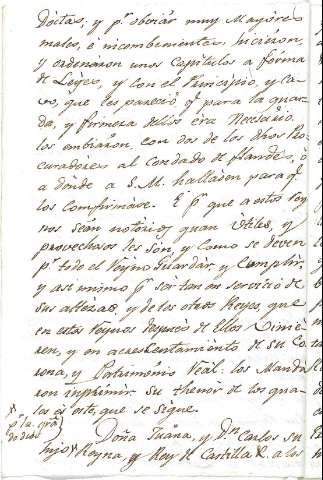 Doctas; y pª obviar muy Mayores
males, e incombenientes, hicieron,
y ordenaron unos Capitulos a forma
de Leyes, y con el Principio, y ca-
vo, que les pareció qª para la guar-
da, y firmeza dellos era Necesario.
los embiaron, con dos de los dhos Pro-
curadores al Condado de flandes, ò
a donde a S.M. hallasen para qª
los comfirmase. E pª que a estos Rey-
nos seán notorios quan Utiles, y
provechosos les son, y como se deven
pª todo el Reyno Guardar, y Cumplir,
y asi mismo pª ser tan en servicio de
sus altezas, y de los otros Reyes, que
en estos Reynos Reynos de Ellos Vinie-
ren, y en acresentamiento de su Co-
rona, y Patrimonio Real: los Manda-
ron imprimir. Su thenor de los qua-
les es este, que se sigue.
pª la gra
Doña Juana, y Dn Carlos su
hijo Reyna, y Rey de Castilla &. a los